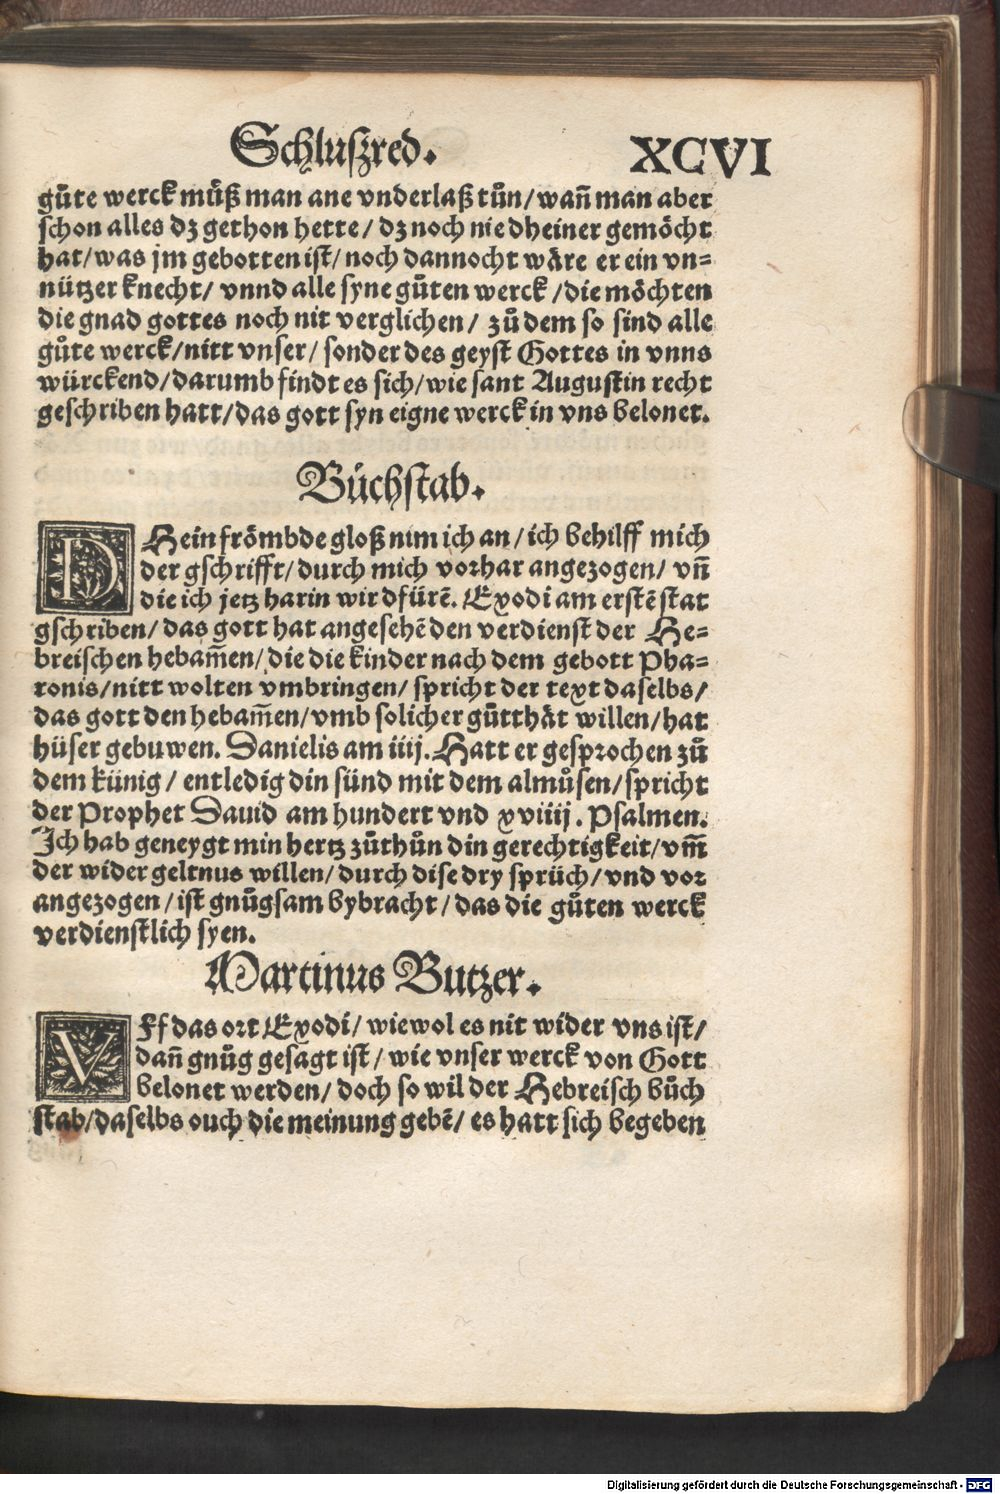 Schluszred. XCVI
gůte werck můß man ane vnderlaß tůn/ wañ man aber
schon alles dz gethon hette/ dz noch nie dheiner gemöcht
hat/ was jm gebotten ist/ noch dannocht wäre er ein vn⸗
nützer knecht/ vnnd alle syne gůten werck/ die möchten
die gnad gottes noch nit verglichen/ zů dem so sind alle
gůte werck/ nitt vnser/ sonder des geyst Gottes in vnns
würckend/ darumb findt es sich/ wie sant Augustin recht
geschriben hatt/ das gott syn eigne werck in vns belonet.
Bůchstab.
DHein frömbde gloß nim ich an/ ich behilff mich
der gschrifft/ durch mich vorhar angezogen/ vñ
die ich jetz harin wird fürē. Exodi am erstē stat
gschriben/ das gott hat angesehē den verdienst der He⸗
breischen hebam̄en/ die die kinder nach dem gebott Pha⸗
ronis/ nitt wolten vmbringen/ spricht der text daselbs/
das gott den hebam̄en/ vmb solicher gůtthät willen/ hat
hüser gebuwen. Danielis am iiij. Hatt er gesprochen zů
dem künig/ entledig din sünd mit dem almůsen/ spricht
der Prophet Dauid am hundert vnd xviiij. Psalmen.
Ich hab geneygt min hertz zůthůn din gerechtigkeit/ vm̄
der wider geltnus willen/ durch dise dry sprüch/ vnd vor
angezogen/ ist gnůgsam bybracht/ das die gůten werck
verdienstlich syen.
Martinus Butzer.
VFf das ort Exodi/ wiewol es nit wider vns ist/
dañ gnůg gesagt ist/ wie vnser werck von Gott
belonet werden/ doch so wil der Hebreisch bůch
stab/ daselbs ouch die meinung gebē/ es hatt sich begeben
Digitalisierung gefördert durch die Deutsche Forschungsgemeinschaft - DFG